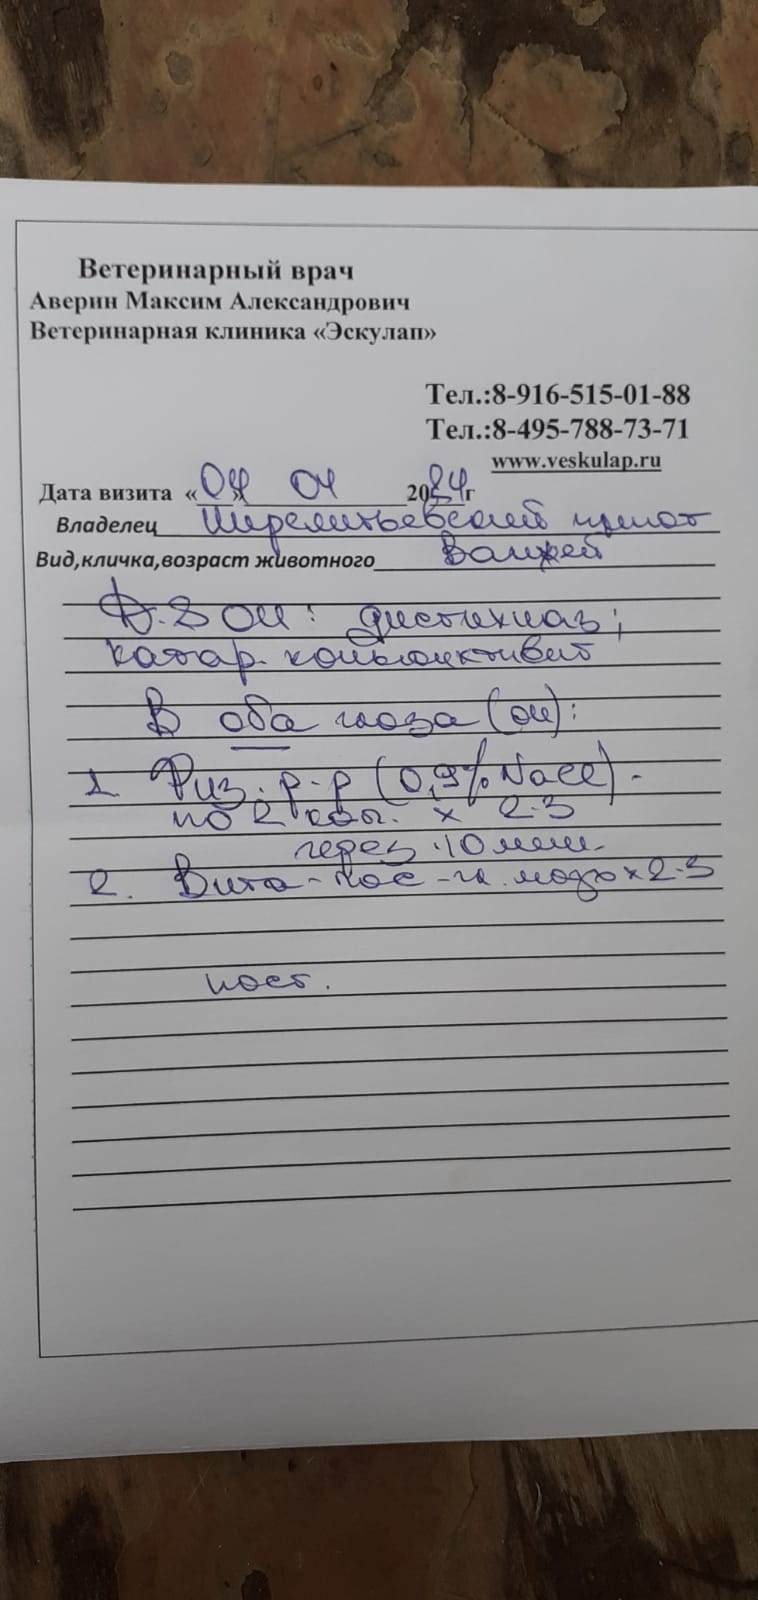 Ветеринарный врач
Аверин Максим Александрович
Ветеринарная клиника «Эскулап»
Тел.:8-916-515-01-88
Тел.:8-495-788-73-71
www.veskulap.ru
Дата визита «04» 04 2024г
Владелец Шереметьевский приют
Вид,кличка,возраст животного
D.S OU: дистихиаз;
катар. конъюнктивит
В оба глаза (OU):
1. Физ. р-р (0,9% NaCl) -
по 2 кап. х 2-3
через 10 мин.
2. Вита-пос-гл. мазь х 2-3
пост.